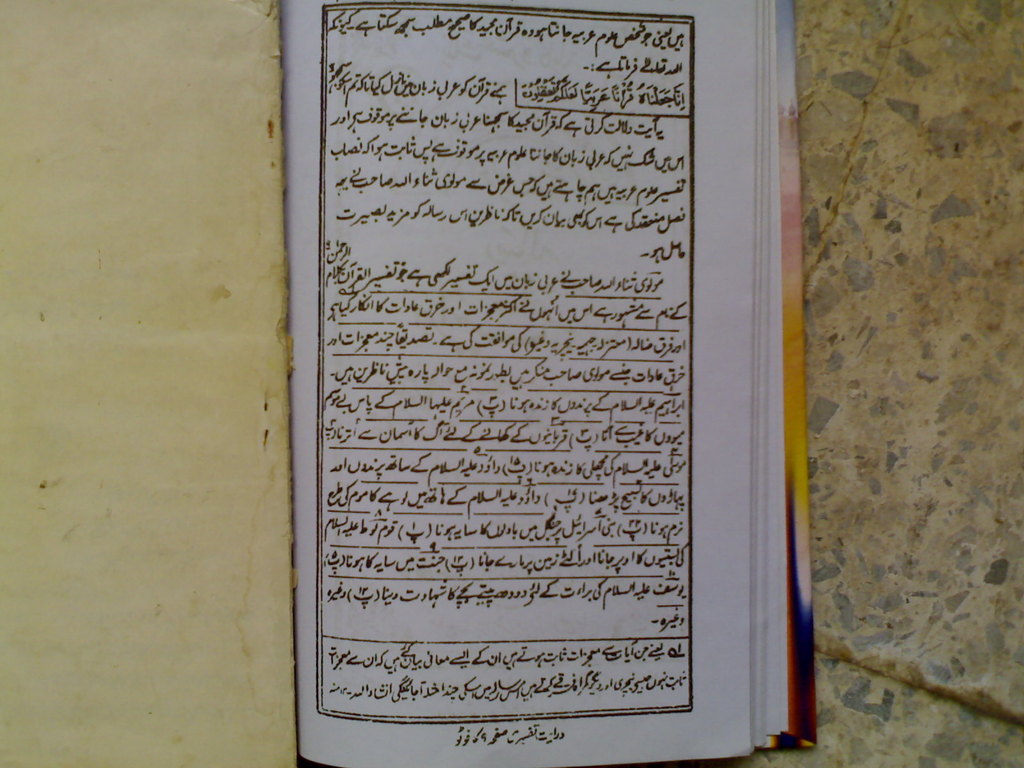 ہیں یعنی جو شخص علوم عربیہ جانتا ہو وہ قرآن مجید کا صحیح مطلب سمجھ سکتا ہے کیونکہ
اللہ تعالےٰ فرماتا ہے :۔
اِنَّا جَعَلْنَاهُ قُرْآنًا عَرَبِيًّا لَعَلَّكُمْ تَعْقِلُوْنَ ہمنے قرآن کو عربی زبان میں نازل کیا تاکہ تم سمجھو
یہ آیت دلالت کرتی ہے کہ قرآن مجید کا سمجھنا عربی زبان جاننے پر موقوف ہے اور
اس میں شک نہیں کہ عربی زبان کا جاننا علوم عربیہ پر موقوف ہے پس ثابت ہوا کہ نصاب
تفسیر علوم عربیہ ہیں ہم چاہتے ہیں کہ جس غرض سے مولوی ثناء اللہ صاحب نے یہ
فصل منعقد کی ہے اس کو بھی بیان کریں تاکہ ناظرین اس رسالہ کو مزید بصیرت
حاصل ہو۔
مولوی ثناء اللہ صاحب نے عربی زبان میں ایک تفسیر لکھی ہے جو تفسیر القرآن بکلام الرحمٰن
کے نام سے مشہور ہے اس میں انہوں نے اکثر معجزات اور خرق عادات کا انکار کیا ہے
اور فرق ضالہ (معتزلہ جہمیہ نیچریہ وغیرہ) کی موافقت کی ہے۔ تصدیقاً چند معجزات اور
خرق عادات جنسے مولوی صاحب منکر ہیں بطور نمونہ مع حوالہ پارہ پیش ناظرین ہیں۔
ابراہیم علیہ السلام کے پرندوں کا زندہ ہونا (پ۳) مریم علیہا السلام کے پاس بے موسم
میووں کا غیب سے آنا (پ۳) قربانیوں کے کھانے کے لئے آگ کا آسمان سے اترنا
موسٰی علیہ السلام کی مچھلی کا زندہ ہونا (پ۱۵) داؤد علیہ السلام کے ساتھ پرندوں اور
پہاڑوں کا تسبیح پڑھنا داؤد علیہ السلام کے ہاتھ میں لوہے کا موم کی طرح
نرم ہونا (پ۲۲) بنی اسرائیل پر جنگل میں بادلوں کا سایہ ہونا (پ۱) قوم لوط علیہ السلام
کی بستیوں کا اوپر جانا اور الٹے زمین پر مارے جانا (پ۱۲) جنت میں سایہ کا ہونا (پ۵)
یوسف علیہ السلام کی براءت کے لئے دودھ پیتے بچے کا شہادت دینا (پ۱۲) وغیرہ
وغیرہ۔
۵۱ یعنے جن آیات سے معجزات ثابت ہوتے ہیں ان کے ایسے معانی بیان کئے ہیں کہ ان سے معجزات
ثابت نہیں اور دیگر گمراہ فرقے اس رسالہ میں بھی چند انشاء اللہ ۱۲ منہ
درایت تفسیری صفحہ ۹ کا فوٹو